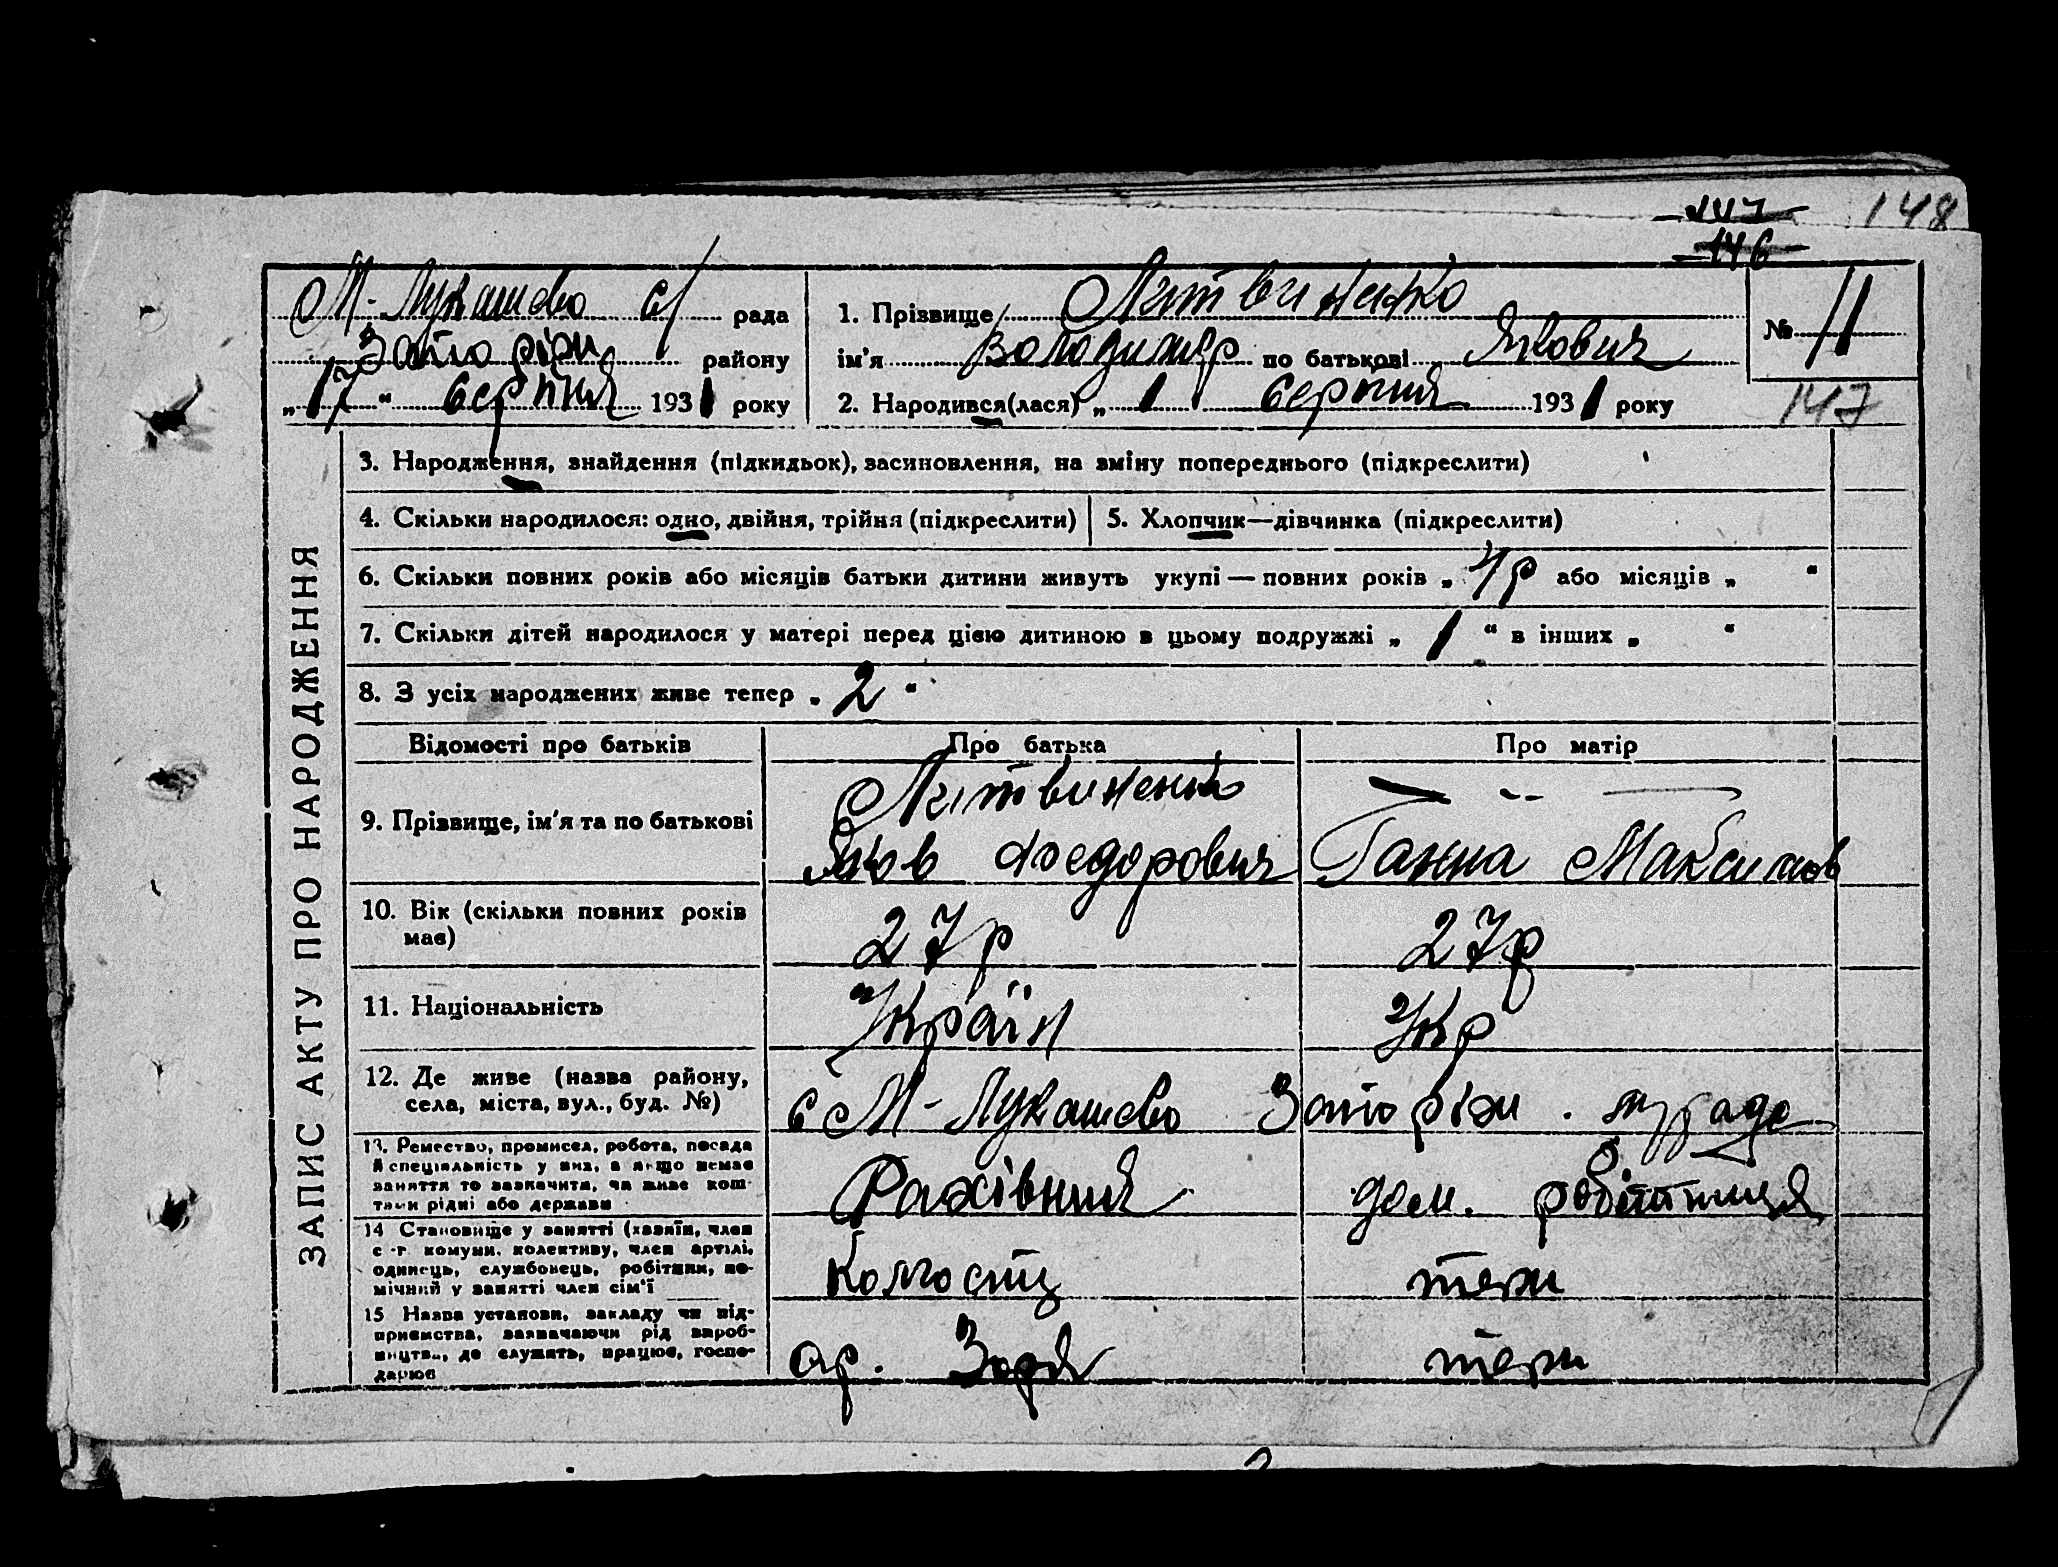 147 148
146
М-Лукашево с/ рада
Запоріж району
„17“ серпня 1931 року
1. Прізвище Литвиненко
ім'я Володимир по батькові Якович
2. Народився(лася) „1 серпня 1931 року
№ 11
147
ЗАПИС АКТУ ПРО НАРОДЖЕННЯ
3. Народження, знайдення (підкидьок), засиновлення, на зміну попереднього (підкреслити)
4. Скільки народилося: одно, двійня, трійня (підкреслити) 5. Хлопчик—дівчинка (підкреслити)
6. Скільки повних років або місяців батьки дитини живуть укупі — повних років „4р або місяців „ “
7. Скільки дітей народилося у матері перед цією дитиною в цьому подружжі „ 1 “ в інших „ “
8. З усіх народжених живе тепер „ 2 “
Відомості про батьків Про батька Про матір
9. Прізвище, ім'я та по батькові
Литвиненко — " —
Яков Федорович Ганна Максимов
10. Вік (скільки повних років
має)
27р 27р
11. Національність
Україн Укр
12. Де живе (назва району,
села, міста, вул., буд. №)
с М-Лукашево Запоріж.
13. Ремество, промисел, робота, посада
й спеціяльність у них, а якщо немає
заняття то зазначити, чи живе кош-
тами рідні або держави
Рахівник дом. робітниця
14 Становище у занятті (хазяїн, член
с.-г. комуни, колективу, член артілі,
одинець, службовець, робітник, по-
мічний у занятті член сім'ї
Колгоспц
15 Назва установи, закладу чи під-
приємства, зазначаючи рід вироб-
ництва, де служить, працює, госпо-
дарює
ар. Зоря